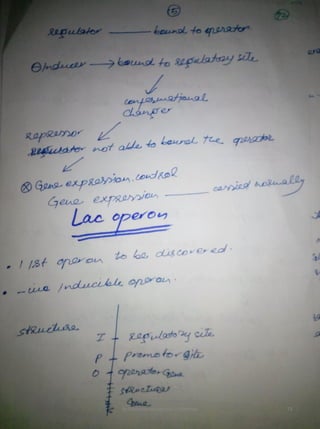 5
regulator —— bound to operator
Inducer → bound to regulatory site
conformational
changes
repressor
regulator not able to bound the operator
Gene expression control
Gene expression —— carried normally
Lac operon
• 1 1st operon to be discovered.
• -ive inducible operon.
structure
I regulatory site
P promotor site
O operator Gene
structural
Gene